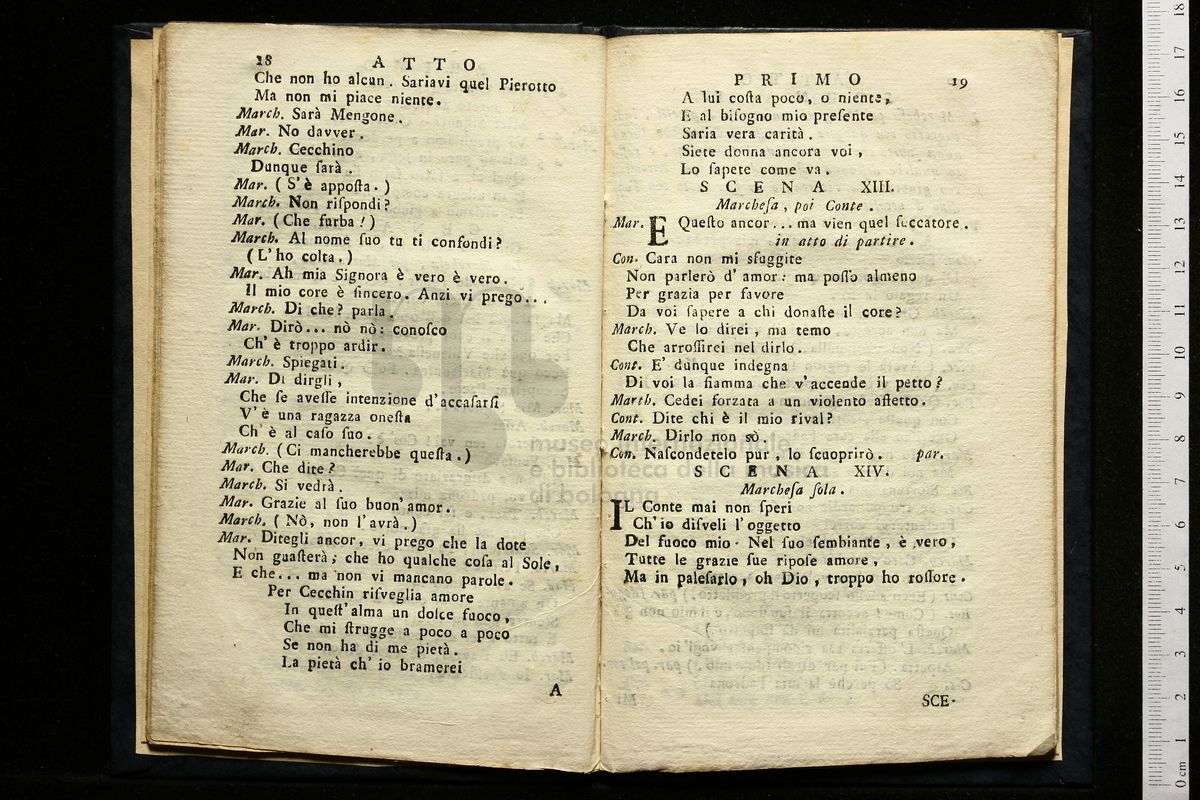 18 ATTO
Che non ho alcun. Sariavi quel Pierotto
Ma non mi piace niente.
March. Sarà Mengone.
Mar. No davver.
March. Cecchino
Dunque ſarà.
Mar. (S'è appoſta.)
March. Non riſpondi?
Mar. (Che furba!)
March. Al nome ſuo tu ti confondi?
(L'ho colta.)
Mar. Ah mia Signora è vero è vero.
Il mio core è ſincero. Anzi vi prego...
March. Di che? parla.
Mar. Dirò... nò nò: conoſco
Ch'è troppo ardir.
March. Spiegati.
Mar. Di dirgli,
Che ſe aveſſe intenzione d'accaſarſi
V'è una ragazza oneſta
Ch'è al caſo ſuo.
March. (Ci mancherebbe queſta.)
Mar. Che dite?
March. Si vedrà.
Mar. Grazie al ſuo buon'amor.
March. (Nò, non l'avrà.)
Mar. Ditegli ancor, vi prego che la dote
Non guaſterà; che ho qualche coſa al Sole,
E che... ma non vi mancano parole.
Per Cecchin riſveglia amore
In queſt'alma un dolce fuoco,
Che mi ſtrugge a poco a poco
Se non ha di me pietà.
La pietà ch'io bramerei
A
PRIMO 19
A lui coſta poco, o niente,
E al biſogno mio preſente
Saria vera carità.
Siete donna ancora voi,
Lo ſapete come va.
SCENA XIII.
Marcheſa, poi Conte.
Mar. E Queſto ancor... ma vien quel ſeccatore.
in atto di partire.
Con. Cara non mi sfuggite
Non parlerò d'amor: ma poſſo almeno
Per grazia per favore
Da voi ſapere a chi donaſte il core?
March. Ve lo direi, ma temo
Che arroſſirei nel dirlo.
Cont. E' dunque indegna
Di voi la fiamma che v'accende il petto?
March. Cedei forzata a un violento affetto.
Cont. Dite chi è il mio rival?
March. Dirlo non sò.
Con. Naſcondetelo pur, lo ſcuoprirò. par.
SCENA XIV.
Marcheſa ſola.
IL Conte mai non ſperi
Ch'io diſveli l'oggetto
Del fuoco mio. Nel ſuo ſembiante, è vero,
Tutte le grazie ſue ripoſe amore,
Ma in paleſarlo, oh Dio, troppo ho roſſore.
SCE-
museo internazionale
e biblioteca della musica
di bologna
18
17
16
15
14
13
12
11
10
9
8
7
6
5
4
3
2
1
0 cm